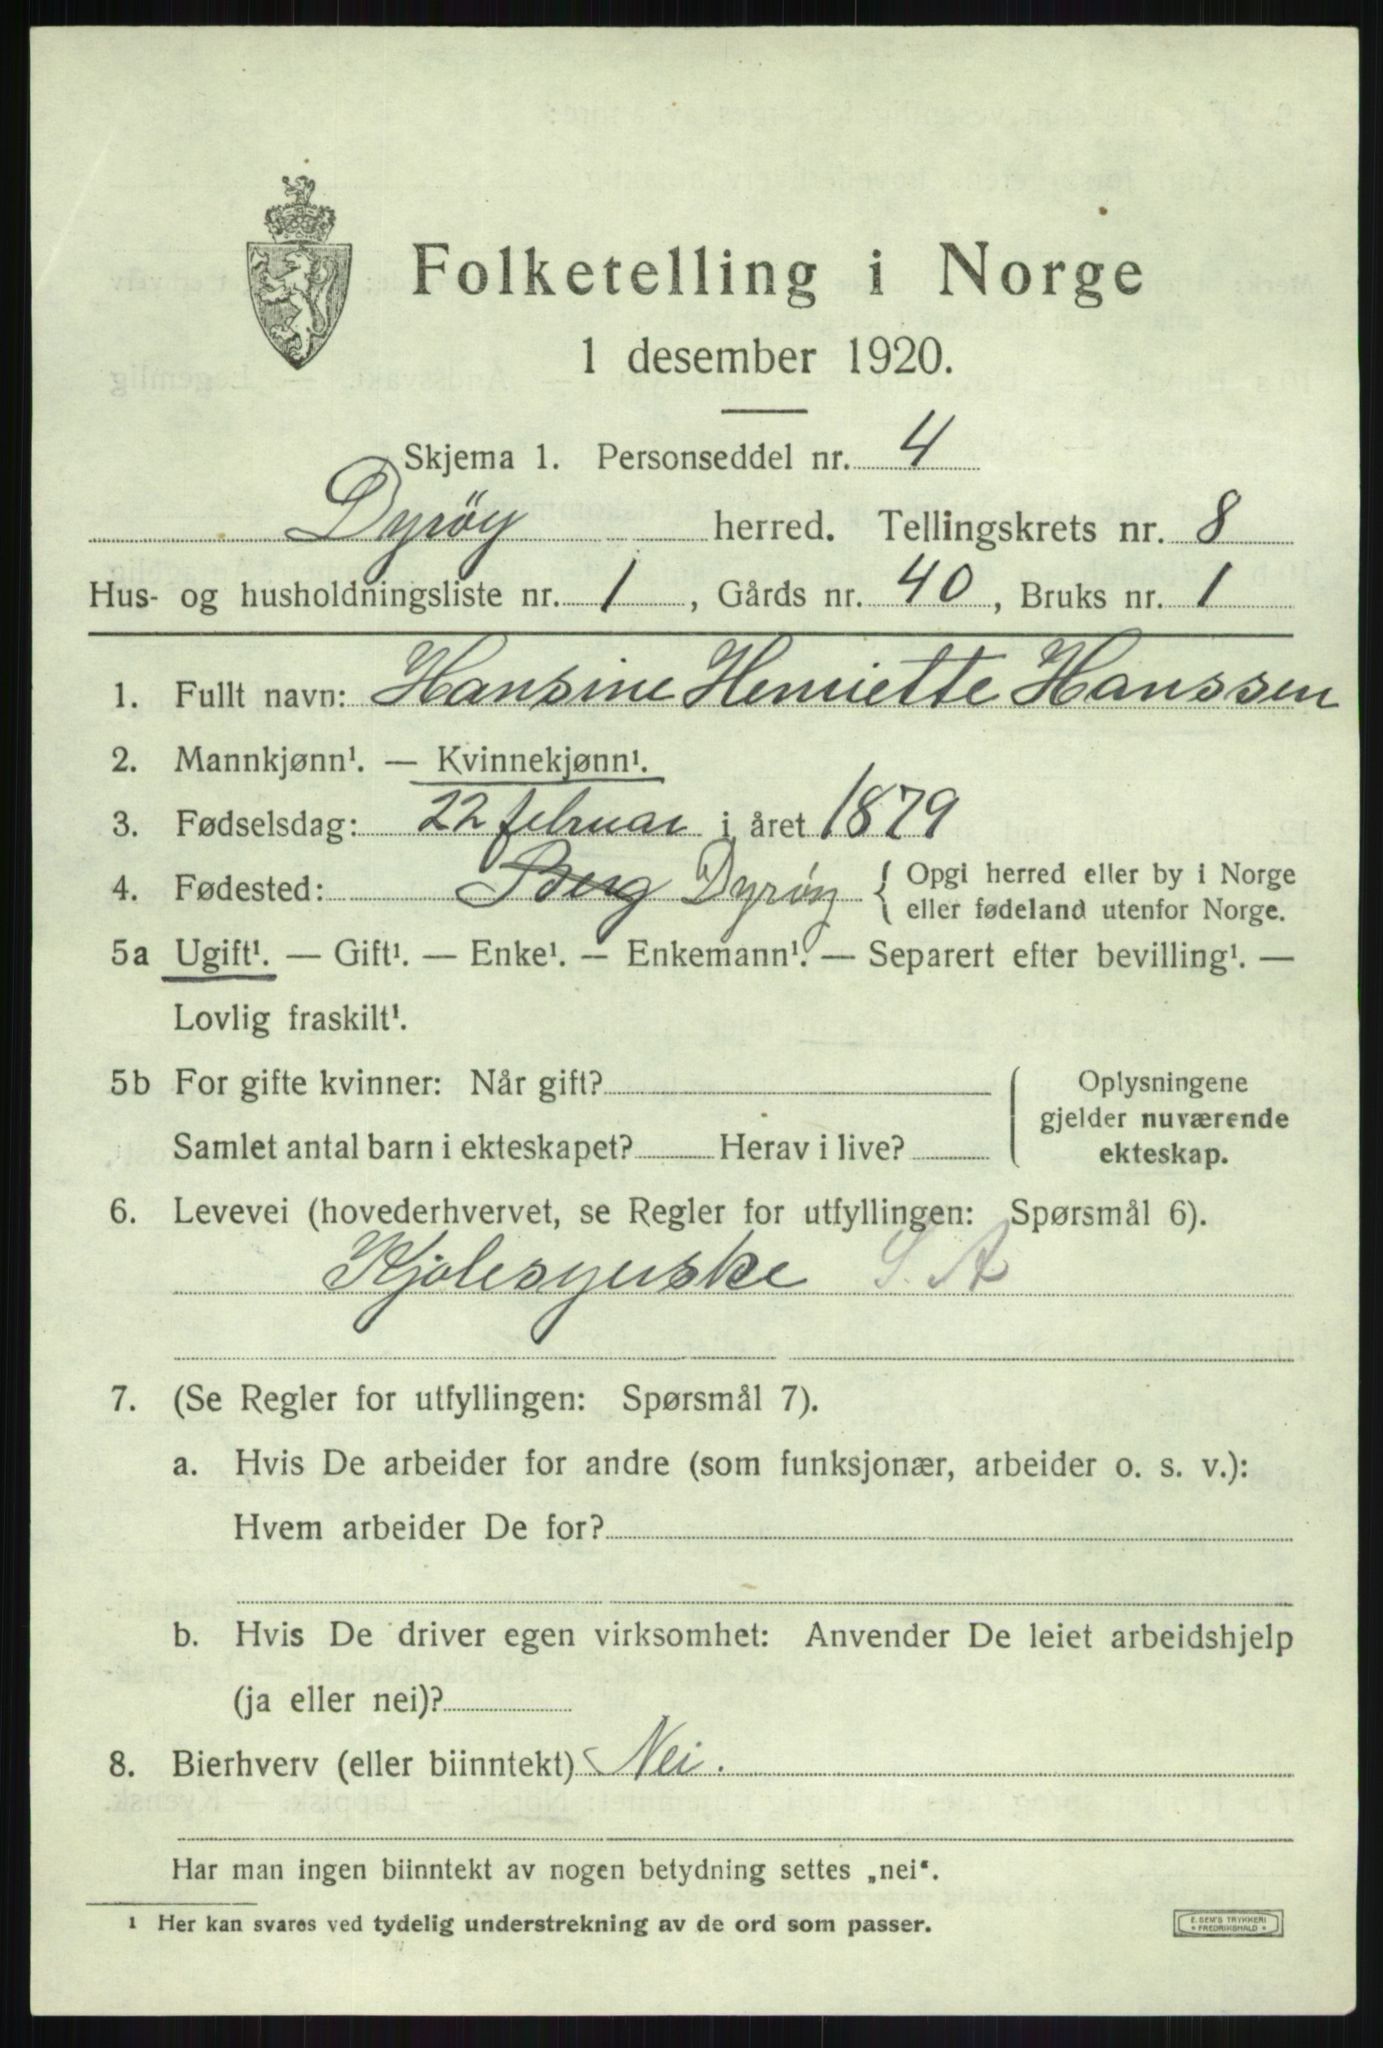 Folketelling i Norge
1 desember 1920.
Skjema 1. Personseddel nr. 4
Dyrøy herred. Tellingskrets nr. 8
Hus- og husholdningsliste nr. 1, Gårds nr. 40, Bruks nr. 1
1. Fullt navn: Hansine Henriette Hanssen
2. Mannkjønn¹. — Kvinnekjønn¹.
3. Fødselsdag: 22 februar i året 1879
4. Fødested: Berg Dyrøy { Opgi herred eller by i Norge
eller fødeland utenfor Norge.
5a Ugift¹. — Gift¹. — Enke¹. — Enkemann¹. — Separert efter bevilling¹. —
Lovlig fraskilt¹.
5b For gifte kvinner: Når gift?
Samlet antal barn i ekteskapet? Herav i live?
Oplysningene
gjelder nuværende
ekteskap.
6. Levevei (hovederhvervet, se Regler for utfyllingen: Spørsmål 6).
Kjolesyerske S. A
7. (Se Regler for utfyllingen: Spørsmål 7).
a. Hvis De arbeider for andre (som funksjonær, arbeider o. s. v.):
Hvem arbeider De for?
b. Hvis De driver egen virksomhet: Anvender De leiet arbeidshjelp
(ja eller nei)?
8. Bierhverv (eller biinntekt) Nei.
Har man ingen biinntekt av nogen betydning settes „nei".
¹ Her kan svares ved tydelig understrekning av de ord som passer.
E. SEM'S TRYKKERI
* FREDRIKSHALD *